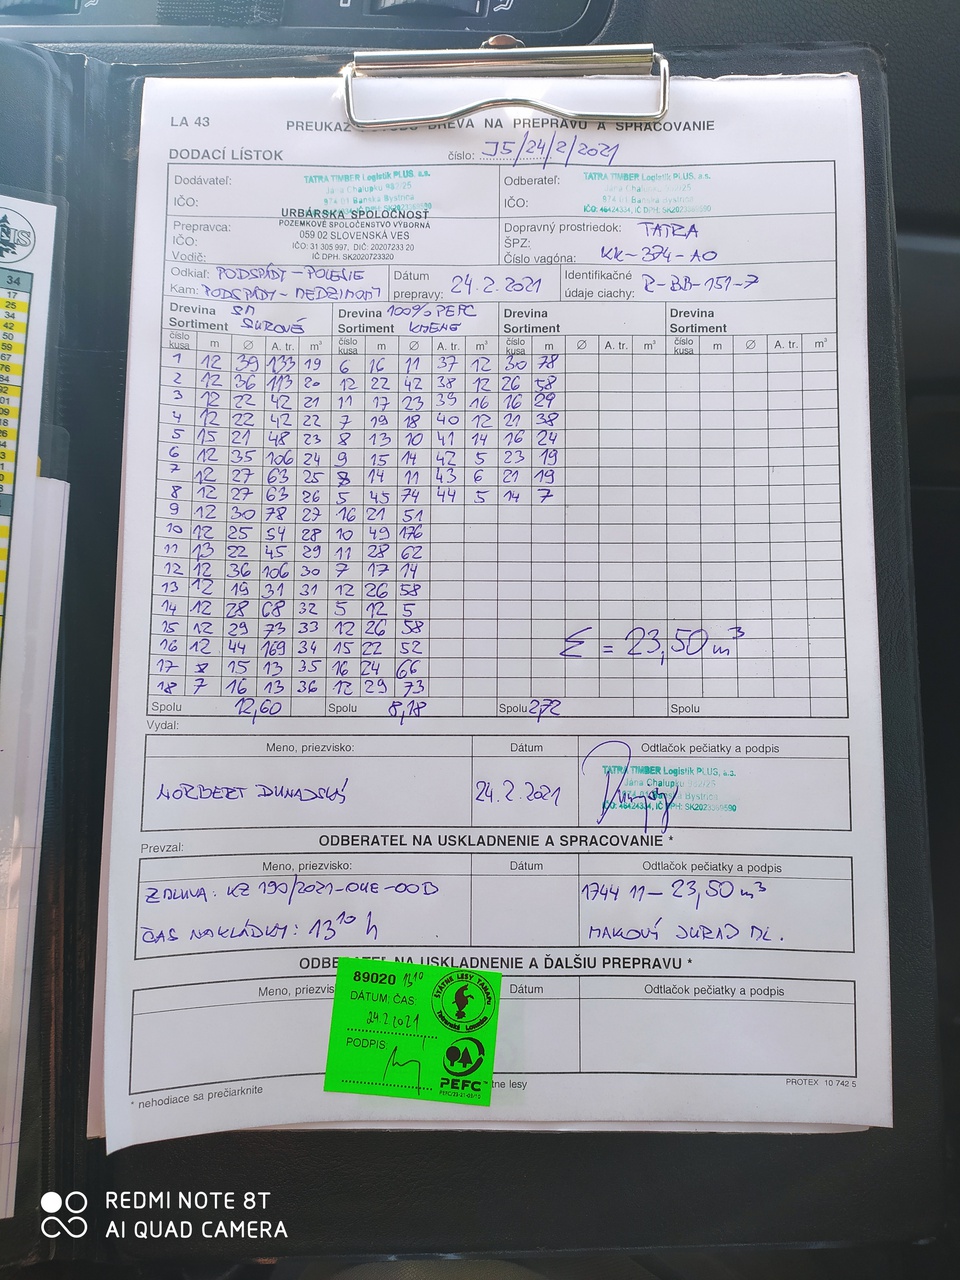 LA 43
PREUKAZ DREVA NA PREPRAVU A SPRACOVANIE
DODACÍ LÍSTOK číslo: J5/24/2/2021
Dodávateľ: TATRA TIMBER Logistik PLUS, a.s. Odberateľ: TATRA TIMBER Logistik PLUS, a.s.
Jána Chalupku 982/25
974 01 Banská Bystrica
IČO: IČO: IČO: 46424334, IČ DPH:
URBÁRSKA SPOLOČNOSŤ
Prepravca: POZEMKOVÉ SPOLOČENSTVO VÝBORNÁ Dopravný prostriedok: TATRA
059 02 SLOVENSKÁ VES ŠPZ:
IČO: IČO: 31 305 997, DIČ: 20207233 20
Vodič: IČ DPH: SK2020723320 Číslo vagóna: KK-374-AO
Odkiaľ: PODSPÁDY-POLESIE Dátum Identifikačné
Kam: PODSPÁDY-MEDZIMOST prepravy: 24.2.2021 údaje ciachy: R-BB-151-7
Drevina SM Drevina 100% PEFC Drevina Drevina
Sortiment SUROVÉ Sortiment KMENE Sortiment Sortiment
číslo kusa m Ø A. tr. m³ číslo kusa m Ø A. tr. m³ číslo kusa m Ø A. tr. m³ číslo kusa m Ø A. tr. m³
1 12 39 133 19 6 16 11 37 12 30 78
2 12 36 113 20 12 22 42 38 12 26 58
3 12 22 42 21 11 17 23 39 16 16 29
4 12 22 42 22 7 19 18 40 12 21 38
5 15 21 48 23 8 13 10 41 14 16 24
6 12 35 106 24 9 15 14 42 5 23 19
7 12 27 63 25 8 14 11 43 6 21 19
8 12 27 63 26 5 45 74 44 5 14 7
9 12 30 78 27 16 21 51
10 12 25 54 28 10 49 176
11 13 22 45 29 11 28 62
12 12 36 106 30 7 17 14
13 12 19 31 31 12 26 58
14 12 28 68 32 5 12 5
15 12 29 73 33 12 26 58
16 12 44 169 34 15 22 52
17 8 15 13 35 16 24 66
18 7 16 13 36 12 29 73
Σ = 23,50 m³
Spolu 12,60 Spolu 8,18 Spolu 2,72 Spolu
Vydal:
Meno, priezvisko: Dátum Odtlačok pečiatky a podpis
NORBERT DUNAJSKÝ 24.2.2021 TATRA TIMBER Logistik PLUS, a.s.
Jána Chalupku 982/25
974 01 Banská Bystrica
IČO: 46424334, IČ DPH:
ODBERATEĽ NA USKLADNENIE A SPRACOVANIE *
Prevzal:
Meno, priezvisko: Dátum Odtlačok pečiatky a podpis
KZ 190/2021-04E-00D 1744 11 - 23,50 m³
ČAS NAKLÁDKY: 13¹⁰ h MAKOVÝ JURAJ ML.
NA USKLADNENIE A ĎALŠIU PREPRAVU *
Meno, Dátum Odtlačok pečiatky a podpis
89020 13¹⁰
DÁTUM; ČAS:
24.2.2021
PODPIS:
ŠTÁTNE LESY TANAPu
Tatranská Lomnica
PEFC™
* nehodiace sa prečiarknite lesy PROTEX 10 742 5
34
REDMI NOTE 8T
AI QUAD CAMERA